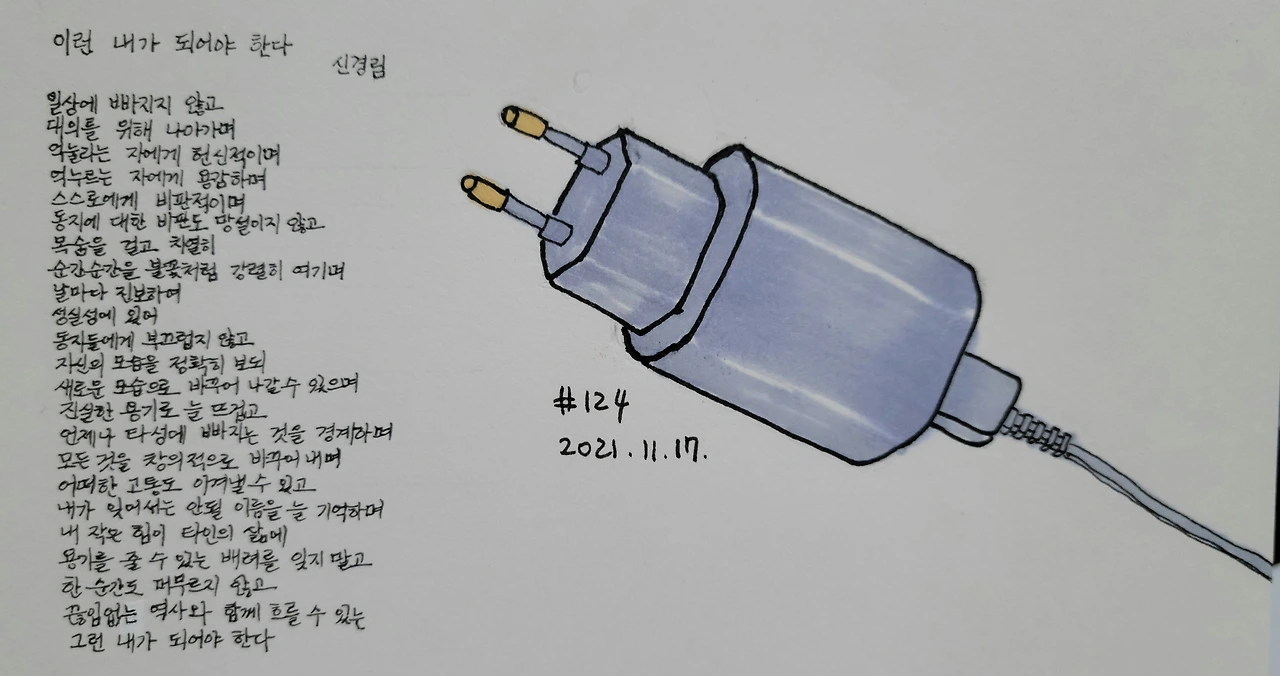 이런 내가 되어야 한다
신경림
일상에 빠지지 않고
대의를 위해 나아가며
억눌리는 자에게 헌신적이며
억누르는 자에게 용감하며
스스로에게 비판적이며
동지에 대한 비판도 망설이지 않고
목숨을 걸고 치열히
순간순간을 불꽃처럼 강렬히 여기며
날마다 진보하여
성실성에 있어
동지들에게 부끄럽지 않고
자신의 모습을 정확히 보되
새로운 모습으로 바꾸어 나갈 수 있으며
진실한 용기로 늘 뜨겁고
언제나 타성에 빠지는 것을 경계하며
모든 것을 창의적으로 바꾸어 내며
어떠한 고통도 이겨낼 수 있고
내가 잊어서는 안될 이름을 늘 기억하며
내 작은 힘이 타인의 삶에
용기를 줄 수 있는 배려를 잊지 말고
한 순간도 머무르지 않고
끊임없는 역사와 함께 흐를 수 있는
그런 내가 되어야 한다
#124
2021.11.17.